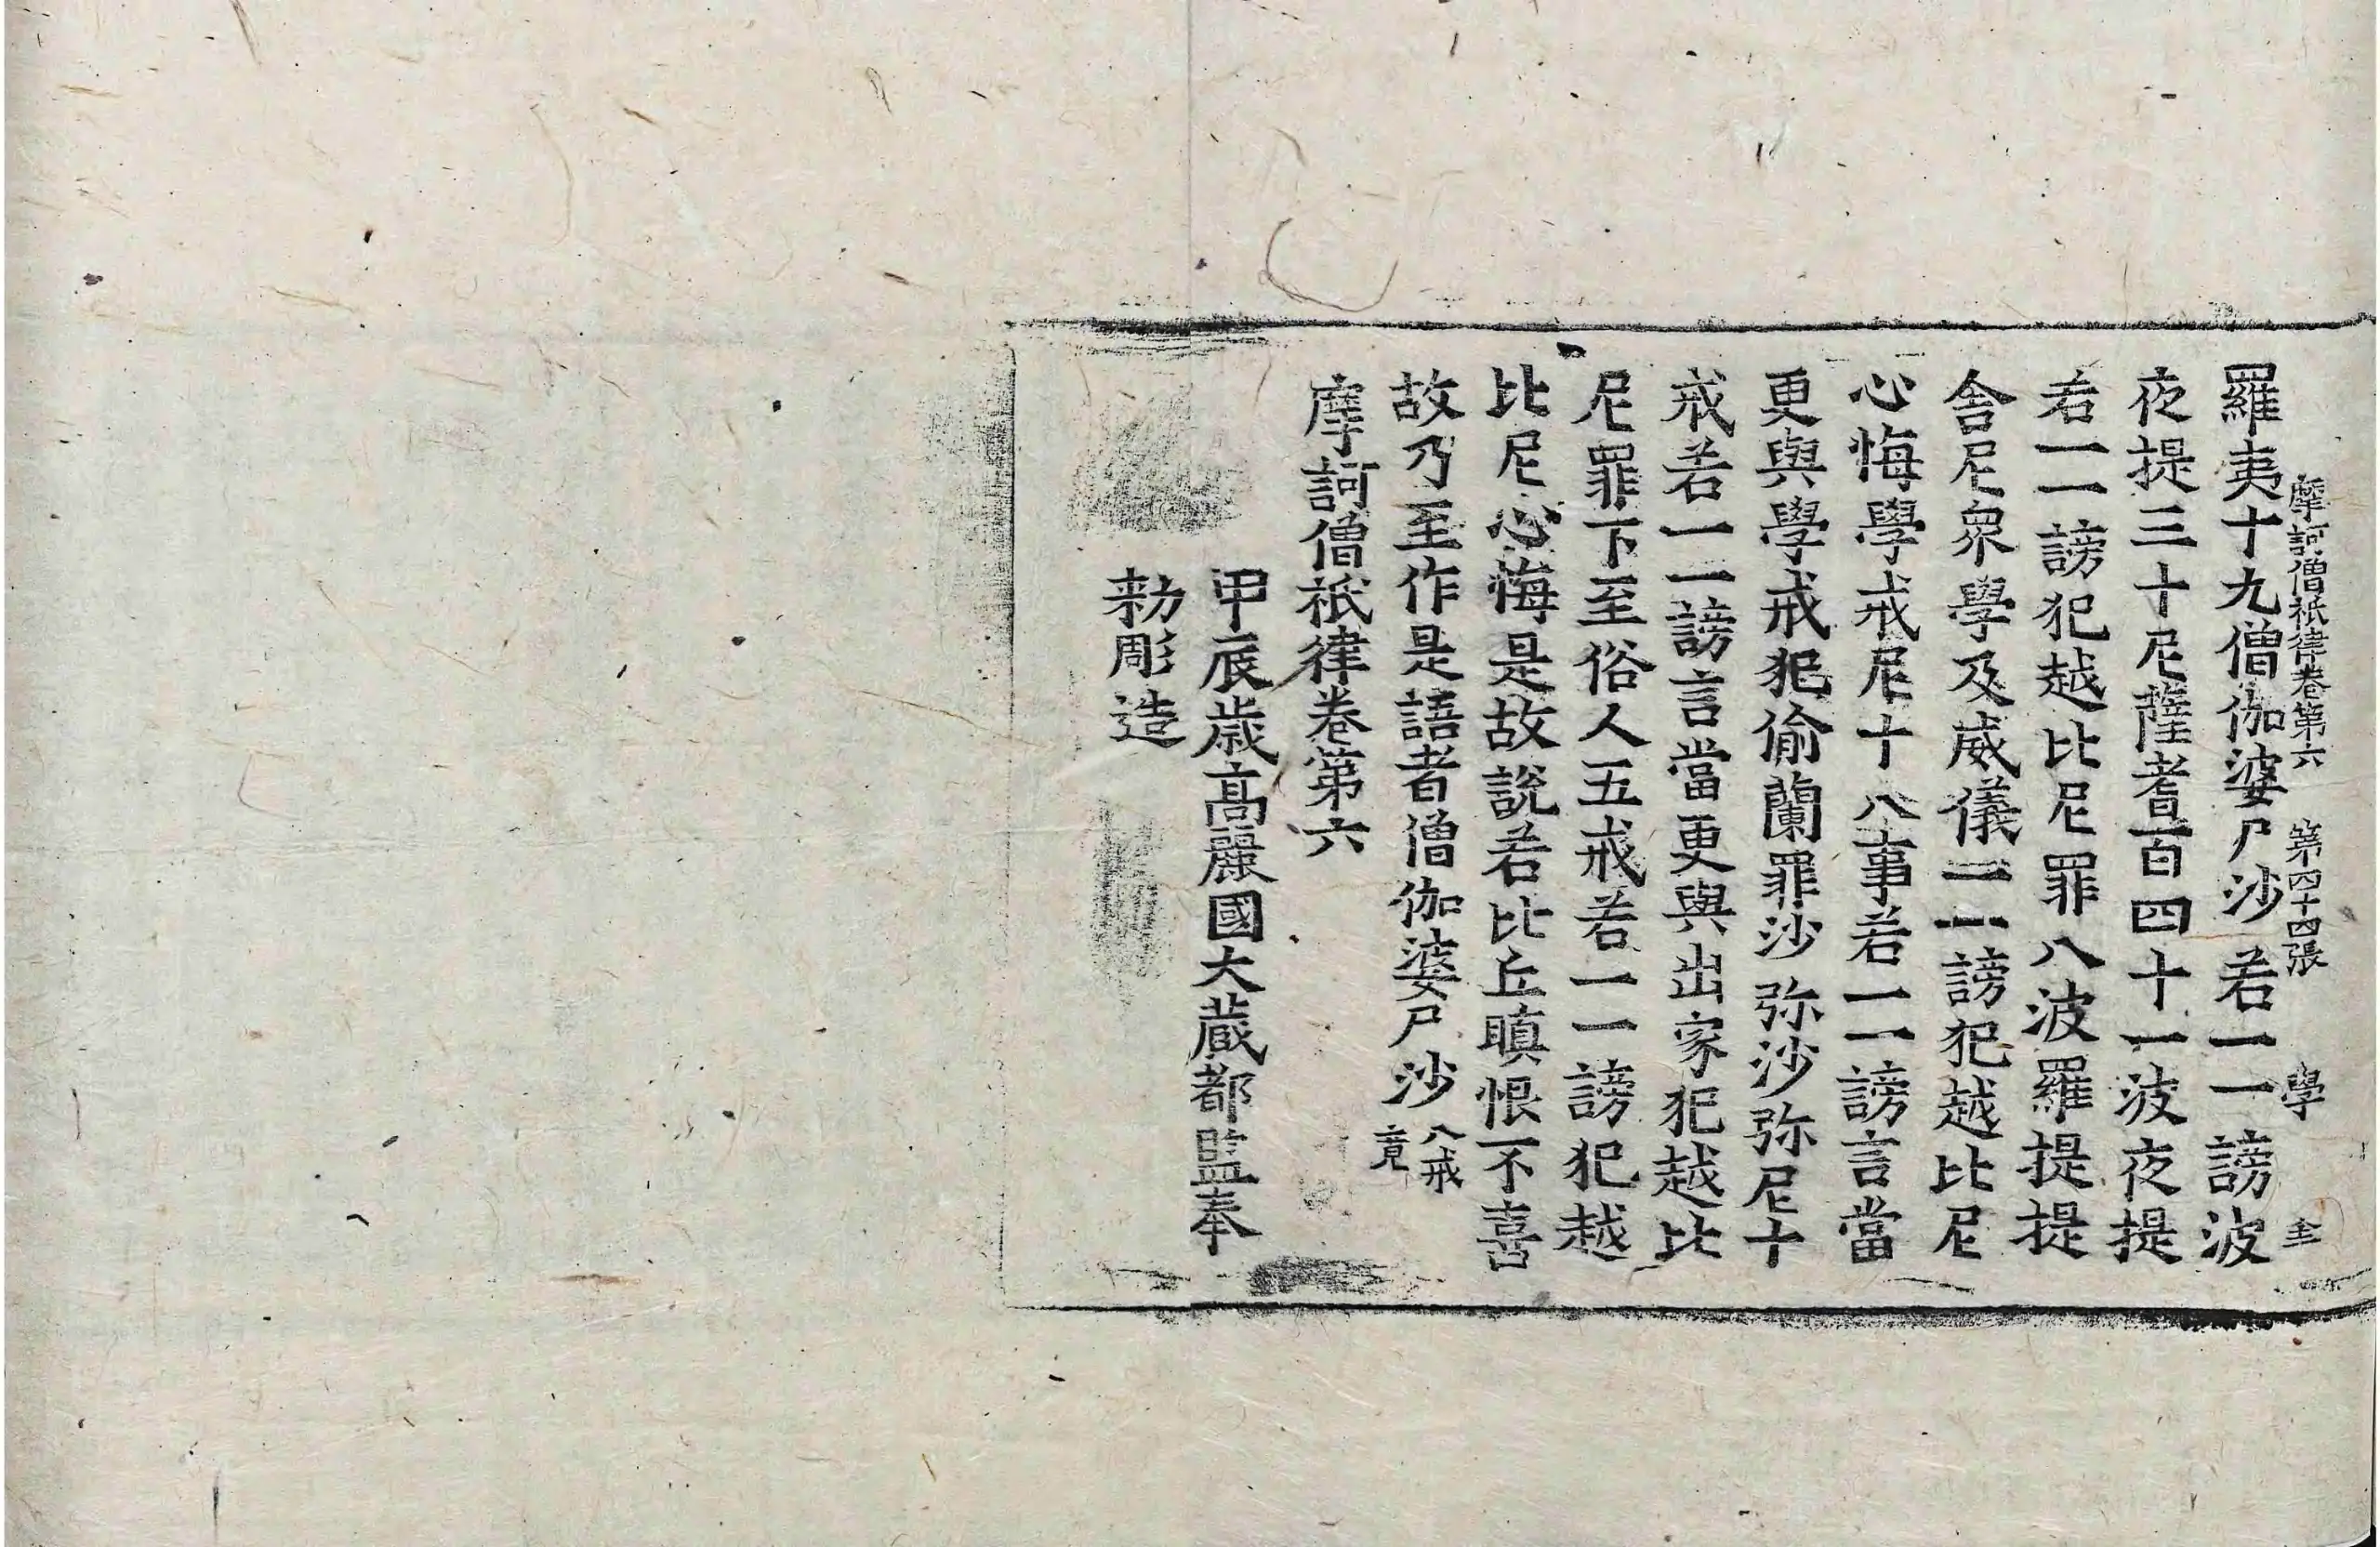 摩訶僧祇律卷第六 第四十四張 學
羅夷十九僧伽婆尸沙若一一謗波
夜提三十尼薩耆百四十一波夜提
若一一謗犯越比尼罪八波羅提提
舍尼衆學及威儀一一謗犯越比尼
心悔學戒尼十八事若一一謗言當
更與學戒犯偷蘭罪沙弥沙弥尼十
戒若一一謗言當更與出家犯越比
尼罪下至俗人五戒若一一謗犯越
比尼心悔是故說若比丘瞋恨不喜
故乃至作是語者僧伽婆尸沙 八戒
竟
摩訶僧祇律卷第六
甲辰歳高麗國大藏都監奉
勑彫造